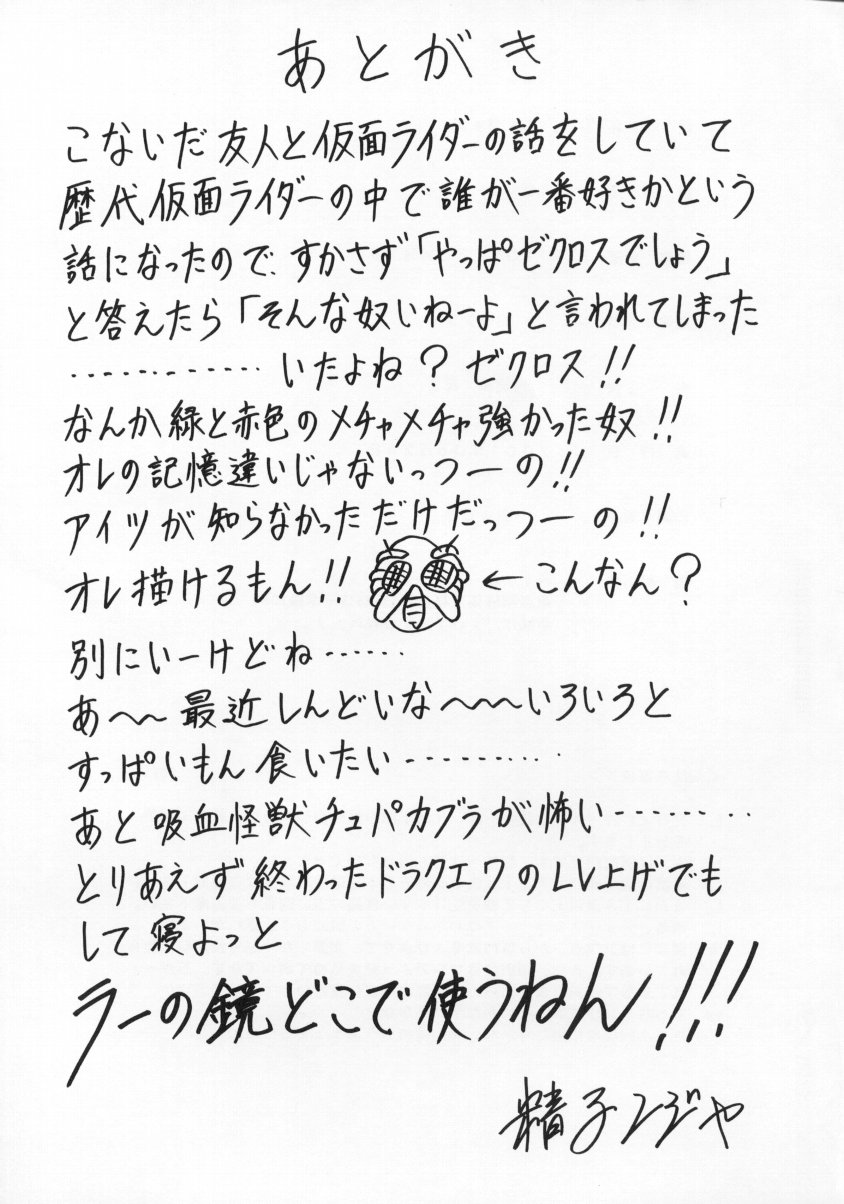 あとがき
こないだ友人と仮面ライダーの話をしていて
歴代仮面ライダーの中で誰が一番好きかという
話になったので、すかさず「やっぱゼクロスでしょう」
と答えたら「そんな奴いねーよ」と言われてしまった
…………いたよね?ゼクロス!!
なんか緑と赤色のメチャメチャ強かった奴!!
オレの記憶違いじゃないっつーの!!
アイツが知らなかっただけだっつーの!!
オレ描けるもん!! ←こんなん?
別にいーけどね……
あ〜〜最近しんどいな〜〜〜いろいろと
すっぱいもん食いたい…………
あと吸血怪獣チュパカブラが怖い…………
とりあえず終わったドラクエ7のLV上げでも
して寝よっと
ラーの鏡どこで使うねん!!!
精子ンジャ